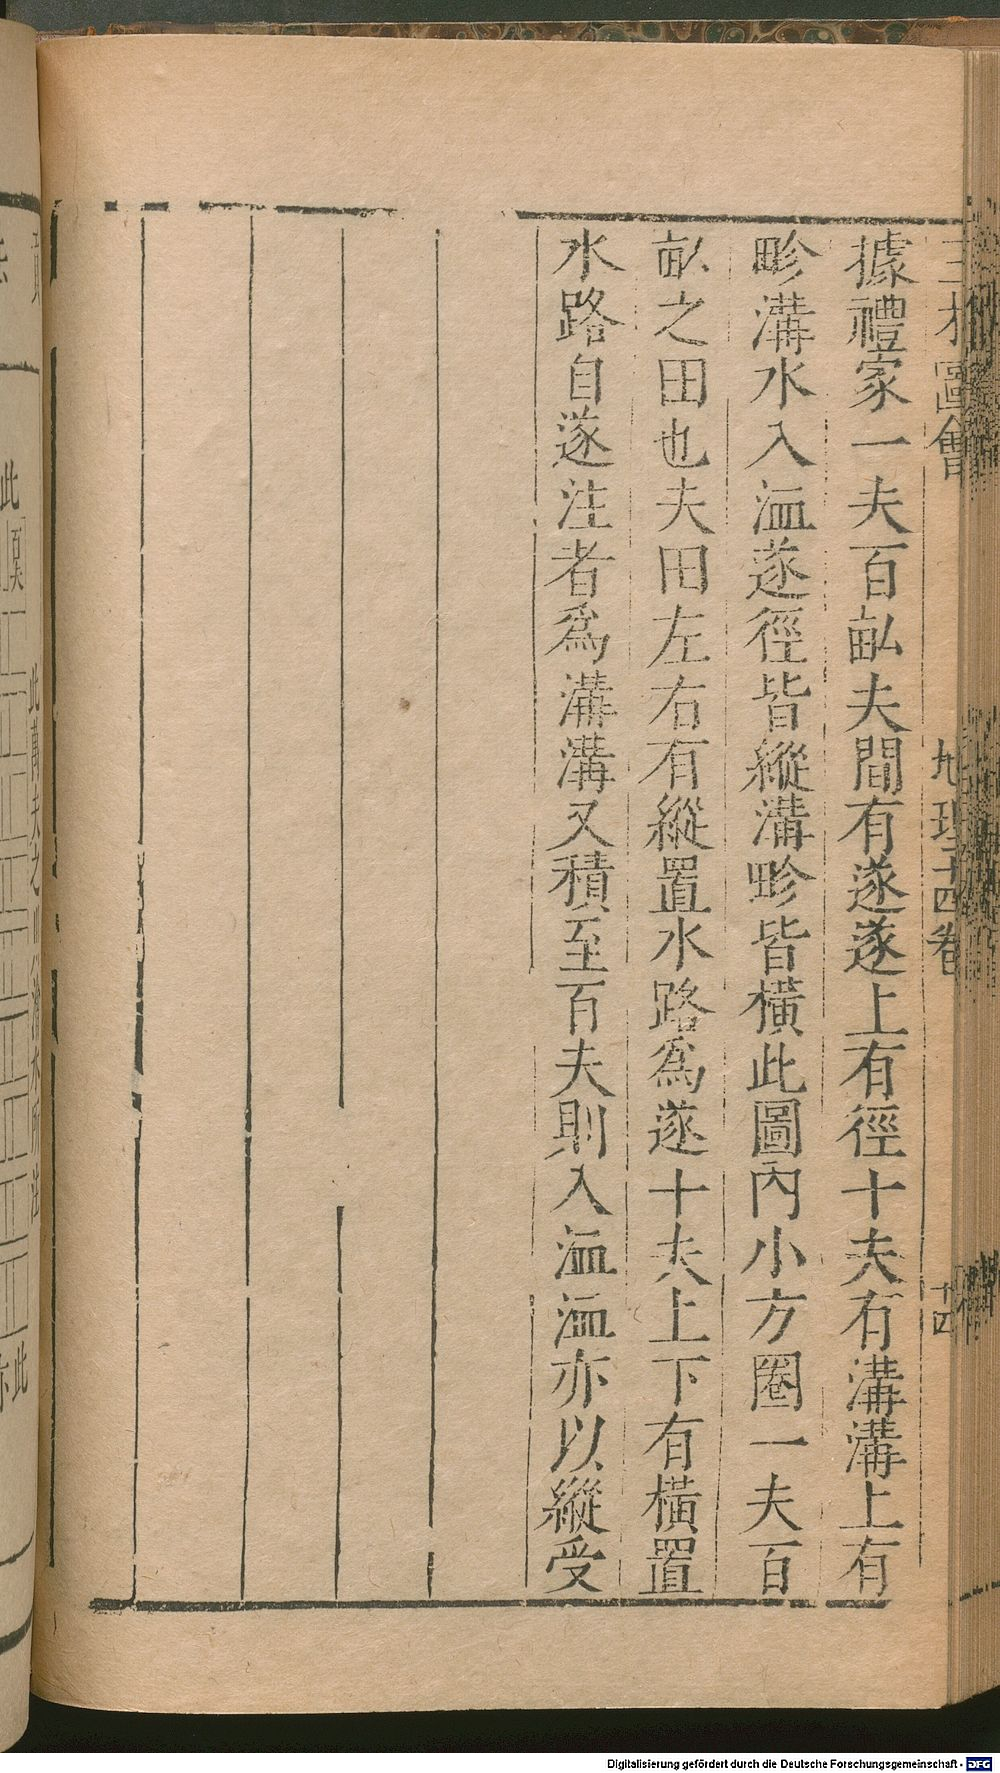 三才圖會 地理十四卷 十四
據禮家一夫百畆夫間有遂遂上有徑十夫有溝溝上有
畛溝水入洫遂徑皆縱溝畛皆橫此圖內小方圈一夫百
畆之田也夫田左右有縱置水路為遂十夫上下有橫置
水路自遂注者為溝溝又積至百夫則入洫洫亦以縱受
此萬夫之川澮水所注
Digitalisierung gefördert durch die Deutsche Forschungsgemeinschaft - DFG